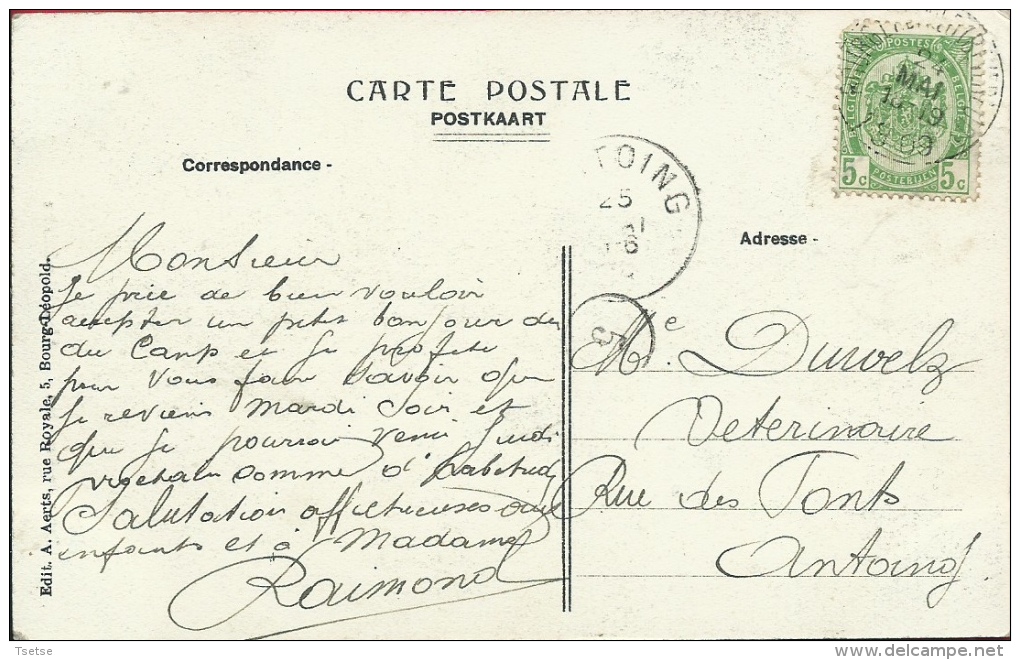 CARTE POSTALE
POSTKAART
Correspondance -
Adresse -
POSTES
24
MAI
18-19
09
5c POSTERIJEN 5c
TOING
25
5
Monsieur
Je prie de bien vouloir
accepter un petit bonjour du
du Camp et je profite
pour vous faire savoir que
je reviens mardi soir et
que je pourrai venir Jeudi
prochain comme d'habitude
Salutation affectueuses aux
enfants et à Madame
Raimond
Me Duwelz
Veterinaire
Rue des Ponts
Antoing
Edit. A. Aerts, rue Royale, 5, Bourg-Léopold.
Tsetse
www.delcampe.net